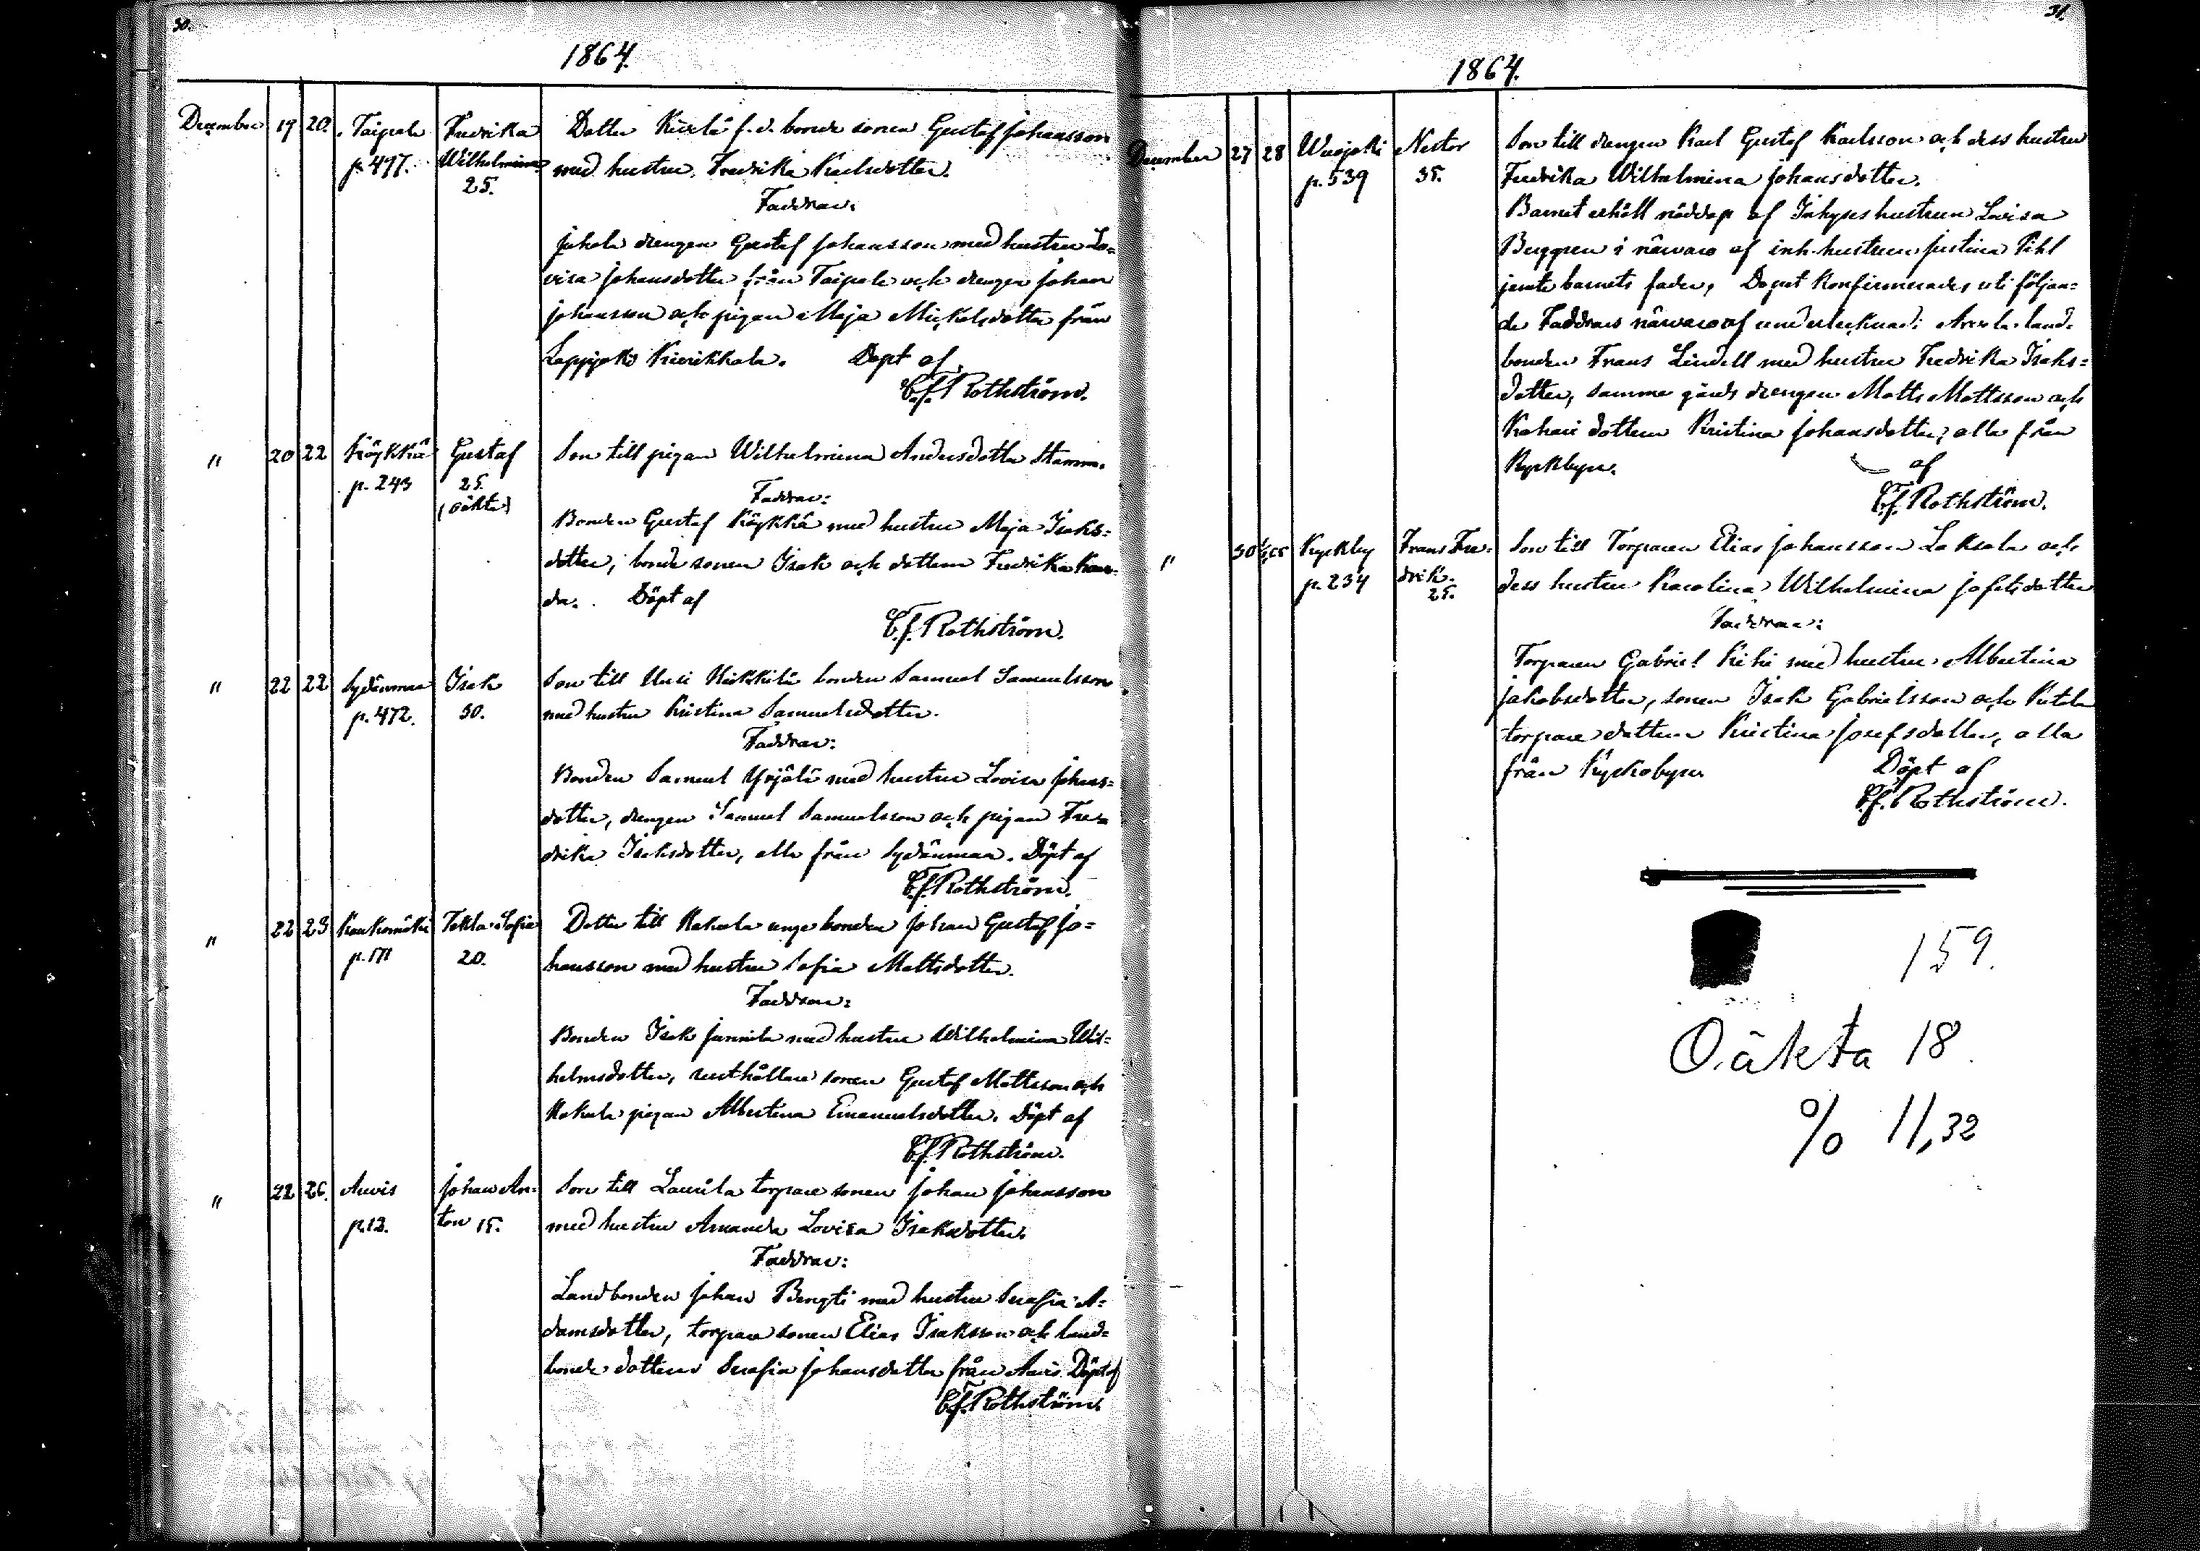 30.
1864.
December 19 20. Taipale Fredrika Dotter Kierlä f.d. bonde sonen Gustaf Johansson
p. 497. Wilhelmina med hustru Fredrika Karlsdotter.
25.
Faddrar:
Juhola drengen Gustaf Johansson med hustru Lo=
visa Johansdotter från Taipale och drengen Johan
Johansson och pigan Maja Mickelsdotter från
Lappijoki Kivikkala. Döpt af
C.F. Rothström.
" 20 22 Köykkä Gustaf Son till pigan Wilhelmina Andersdotter Stamm.
p. 243 25.
(oäkta) Faddrar:
Bonden Gustaf Köykkä med hustru Maja Isaks=
dotter, bonde sonen Isak och dottern Fredrika
da. Döpt af
C.F. Rothström.
" 22 22 Sydänmaa Isak Son till Uusi Heikkilä bonden Samuel Samuelsson
p. 472. 30. med hustru Kristina Samuelsdotter.
Faddrar:
Bonden Samuel Yrjälä med hustru Lovisa Johans=
dotter, drengen Samuel Samuelsson och pigan Fre=
drika Isaksdotter, alla från Sydänmaa. Döpt af
C.F. Rothström.
" 22 23 Kaukomäki Tekla Sofia Dotter till Kakula unge bonden Johan Gustaf Jo=
p. 171 20. hansson med hustru Sofia Mattsdotter.
Faddrar:
Bonden Isak Jannila med hustru Wilhelmina Wil=
helmsdotter, rusthållare sonen Gustaf Mattsson och
Kakula pigan Albertina Emanuelsdotter. Döpt af
C.F. Rothström.
" 22 26. Auvis Johan An= Son till Laurila torpare sonen Johan Johansson
p. 13. ton 15. med hustru Amanda Lovisa Isaksdotter.
Faddrar:
Landbonden Johan Bengti med hustru Serafia A=
damsdotter, torpare sonen Elias Isaksson och land=
bonde dottern Serafia Johansdotter från Auvis. Döpt af
C.F. Rothström.
31.
1864.
December 27 28 Wuojoki Nestor Son till drengen Karl Gustaf Karlsson och dess hustru
p. 539 35. Fredrika Wilhelmina Johansdotter.
Barnet erhöll nöddop af Inhyses hustrun Lovisa
Berggren i närvaro af inh. hustrun Justina Pihl
jemte barnets fader. Dopet konfirmerades uti följan=
de Faddrars närvaro af undertecknad: Arvela land=
bonden Frans Lindell med hustru Fredrika Isaks=
dotter, samma gårds drengen Matts Mattsson och
Kahari dottern Kristina Johansdotter, alla från
Kyrkbyn.
af
C.F. Rothström.
" 30 1/1 65 Kyrkby Frans Fre= Son till Torparen Elias Johansson Laksola och
p. 234 drik. dess hustru Karolina Wilhelmina Josefsdotter
25.
Faddrar:
Torparen Gabriel Kihi med hustru Albertina
Jakobsdotter, sonen Isak Gabrielsson och Ketola
torpare dottern Kristina Josefsdotter, alla
från Kyrkobyn Döpt af
C.F. Rothström.
159.
Oäkta 18.
% 11,32